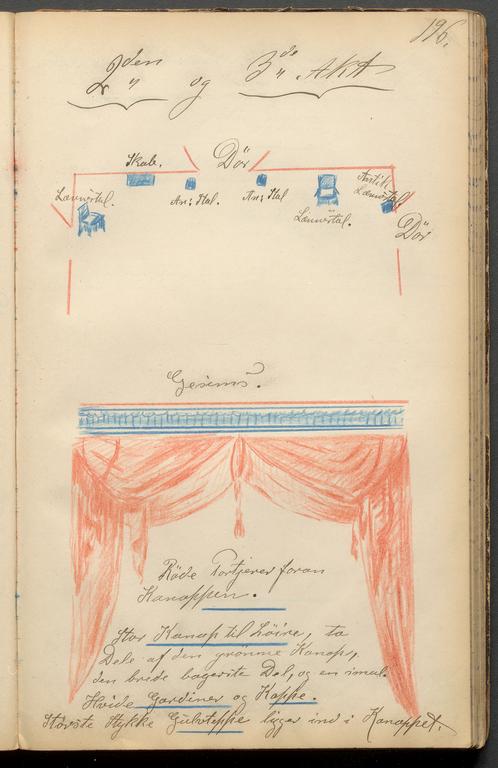 196.
2den og 3die Akt
Skab. Dör
Lænestol. An: Stol. An: Stol Antik
Lænestol. Lænestol.
Dör
Gesims.
Röde Portierer foran
Kanappen.
Stor Kanap til Höire, to
Dele af den grönne Kanap,
den brede bageste Del, og en smal.
Hvide Gardiner og Kappe.
Störste Stykke Gulvteppe ligger ind i Kanappet.